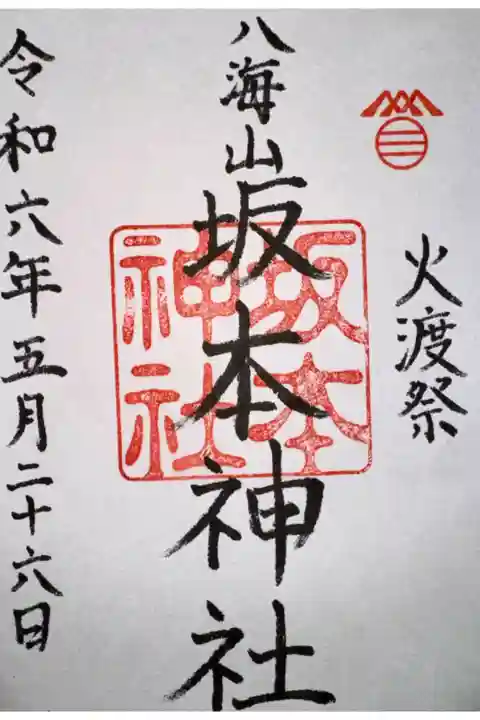 火渡祭
八海山
坂本神社
坂本
神社
令和六年五月二十六日